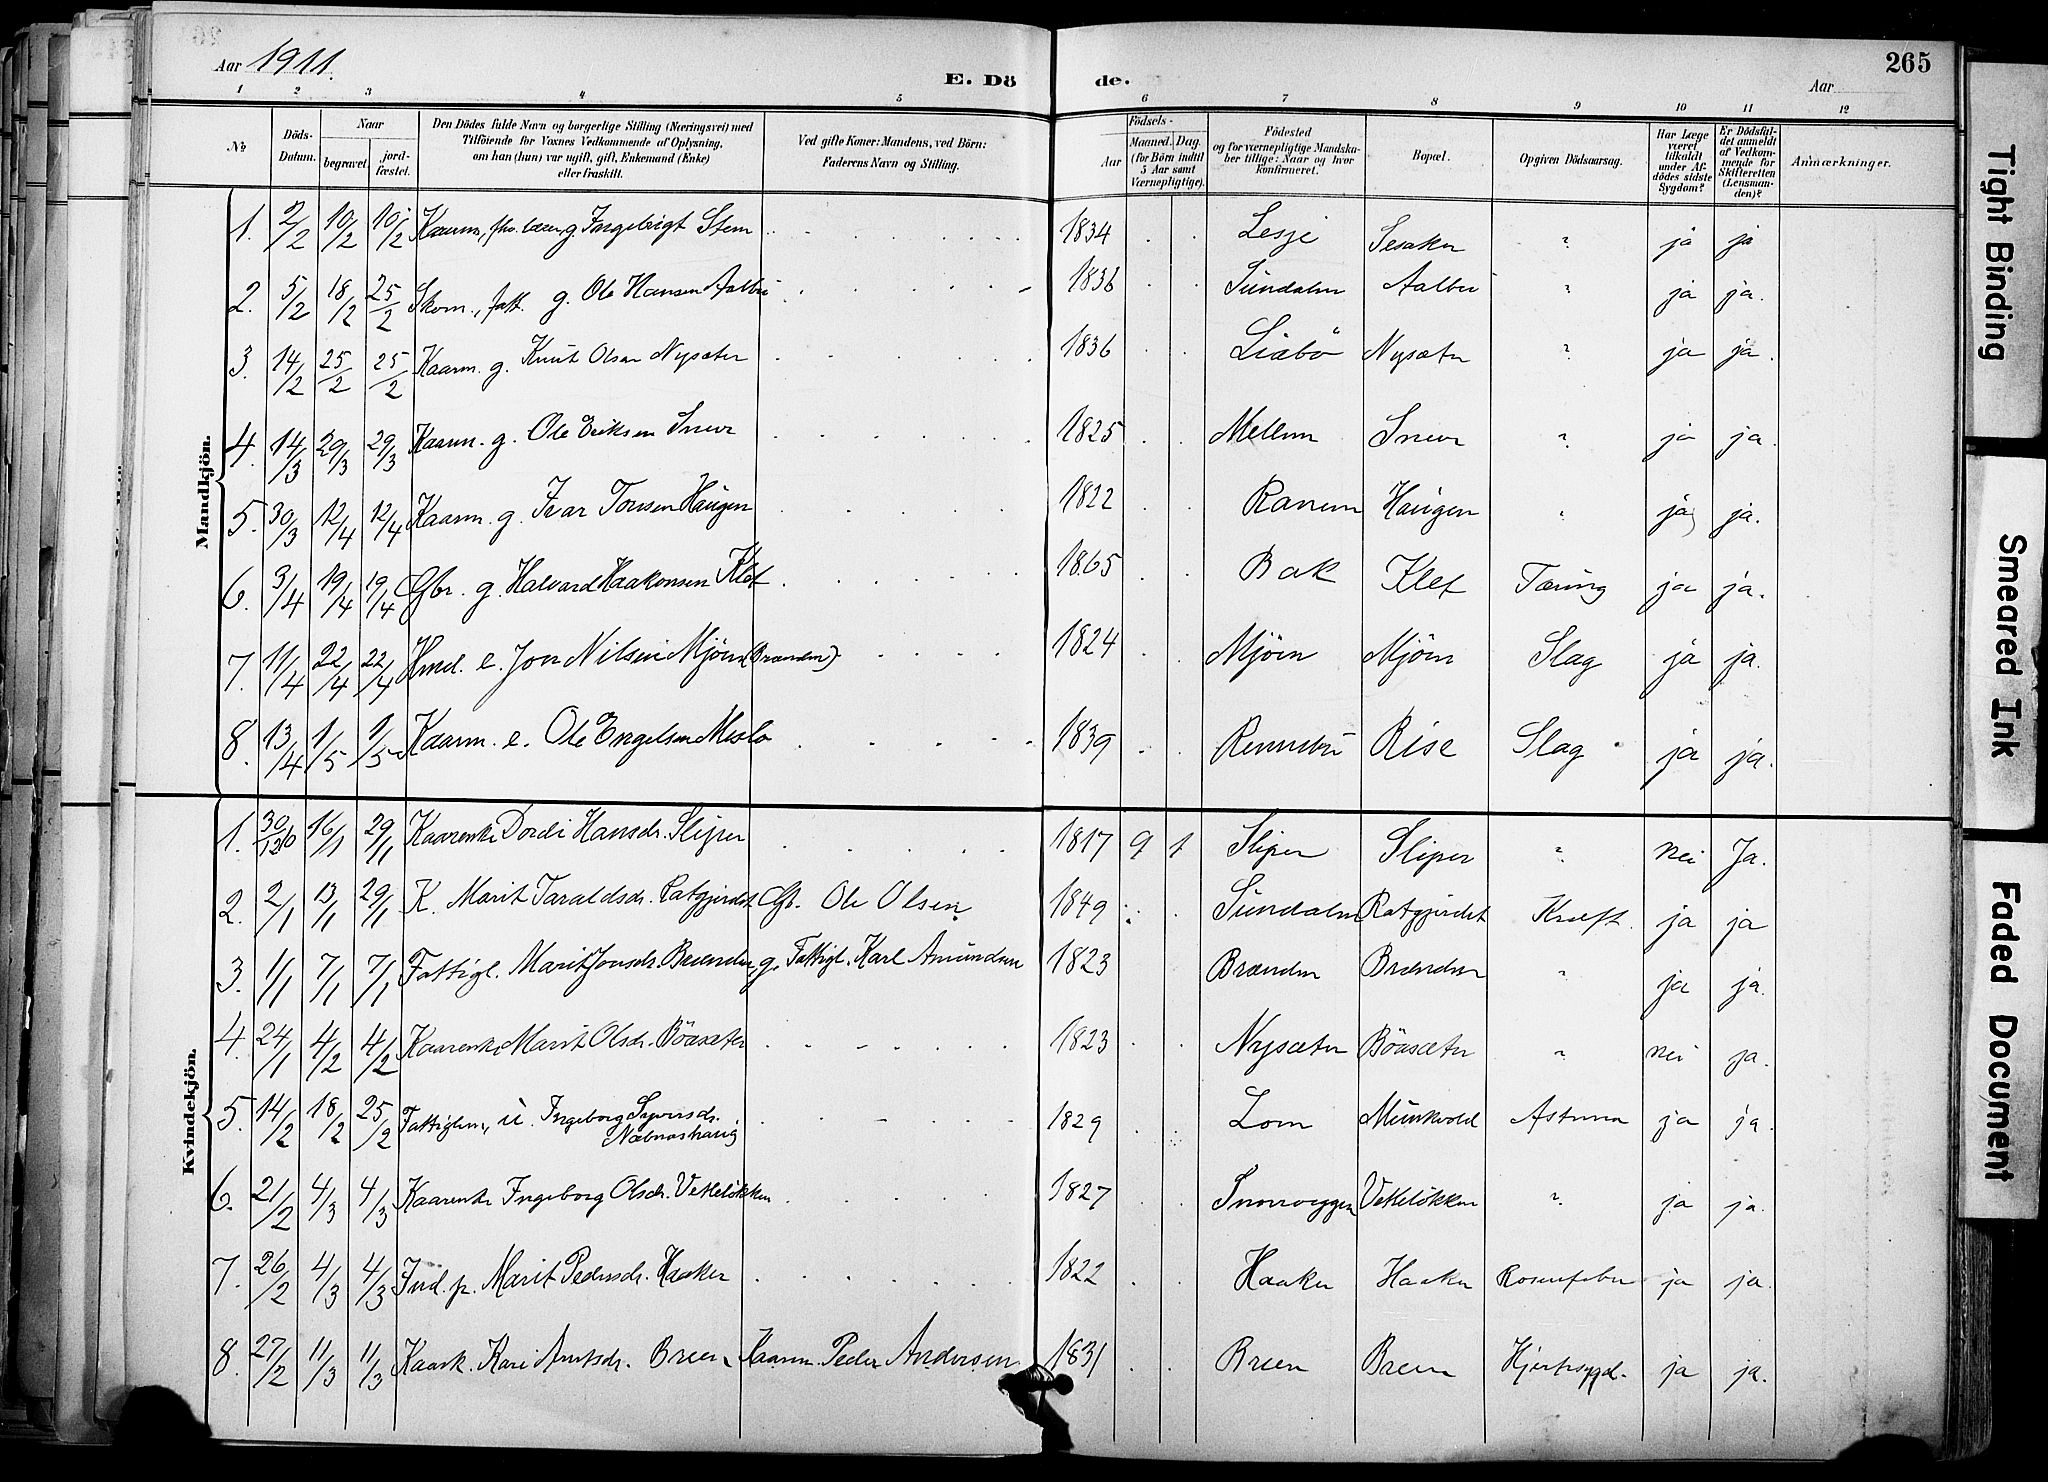 Aar 1911.
E. Dö de.
Aar
265
1 2 3 4 5 6 7 8 9 10 11 12
№
Döds-Datum.
Naar
begravet.
jord-fæstet.
Den Dödes fulde Navn og borgerlige Stilling (Næringsvei) med
Tilföiende for Voxnes Vedkommende af Oplysning,
om han (hun) var ugift, gift, Enkemand (Enke)
eller fraskilt.
Ved gifte Koner: Mandens, ved Börn:
Faderens Navn og Stilling.
Födsels-
Aar
Maaned. Dag.
(for Börn indtil
5 Aar samt
Værnepligtige).
Födested
og for værnepligtige Mandska-
ber tillige: Naar og hvor
konfirmeret.
Bopæl.
Opgiven Dödsaarsag.
Har Læge
været
tilkaldt
under Af-
dödes sidste
Sygdom?
Er Dödsfal-
det anmeldt
af Vedkom-
mende for
Skifteretten
(Lensman-
den)?
Anmærkninger.
Mandkjön.
1. 2/2 10/2 10/2 Kaarm., g Ingebrigt Stem 1834 Lesje Sesaker " ja ja
2. 5/2 18/2 25/2 Skom., fatt. g. Ole Hansen Aalbu 1836 Sundalen Aalbu " ja ja.
3. 14/2 25/2 25/2 Kaarm. g. Knut Olsen Nysæter 1836 Liabö Nysæter " ja ja.
4. 14/3 29/3 29/3 Kaarm. g. Ole Eriksen Sneve 1825 Mellem Sneve " ja ja.
5. 30/3 12/4 12/4 Kaarm. g. Ivar Tonsen Haugen 1822 Ranem Haugen " ja ja.
6. 3/4 19/4 19/4 Gbr. g. Halvard Haakonsen Klef 1865 Bak Klef Tæring ja ja.
7. 11/4 22/4 22/4 Hmd. e. Jon Nilsen Mjöen (Brænden) 1824 Mjöen Mjöen Slag ja ja.
8. 13/4 1/5 1/5 Kaarm. e. Ole Engelsen Meslo 1839 Rennebu Rise Slag ja ja.
Kvindekjön.
1. 30/12 10 16/1 29/1 Kaarenke Dordi Hansdr. Sliper 1817 9 1 Sliper Sliper " nei Ja.
2. 2/1 13/1 29/1 K. Marit Taraldsdr. Ratgjerdet Gb. Ole Olsen 1849 Sundalen Ratgjerdet Kræft. ja ja
3. 1/1 7/1 7/1 Fattigl. Marit Jonsdr. Brænden g. Fattigl. Karl Amundsen 1823 Brænden Brænden " ja ja.
4. 24/1 4/2 4/2 Kaarenke Marit Olsdr. Böasæter 1823 Nysæter Böasæter " nei ja.
5. 14/2 18/2 25/2 Fattiglem, u. Ingeborg Syversdr. 1829 Lom Munkvold Astma ja ja.
6. 21/2 4/3 4/3 Kaarenke Ingeborg Olsdr. Vekleløkken 1827 Snoeveggen Vekleløkken " ja ja.
7. 26/2 4/3 4/3 Ind. p. Marit Pedersdr. Haaker 1822 Haaker Haaker Rosenfeber ja ja.
8. 27/2 11/3 11/3 Kaark. Kari Arntsdr. Breen Kaarm. Peder Andersen 1831 Breen Breen Hjertesygd. ja ja.
Tight Binding
Smeared Ink
Faded Document